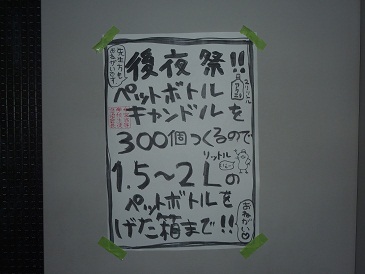 先生方も
おねがいです
後夜祭!!
ペットボトル
キャンドルを
300個つくるので
リットル
1.5～2Lの
ペットボトルを
げた箱まで!!
おねがい